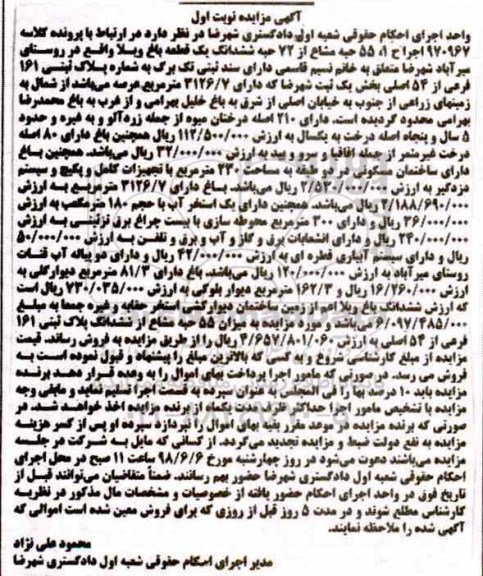 آگهی مزایده نوبت اول
واحد اجرای احکام حقوقی شعبه اول دادگستری شهرضا در نظر دارد در ارتباط با پرونده کلاسه
۹۷۰۹۶۷ اجرا ح ۱، ۵۵ حبه مشاع از ۷۲ حبه ششدانگ یک قطعه باغ ویلا واقع در روستای
میرآباد شهرضا متعلق به خانم نسیم قاسمی دارای سند ثبتی تک برگ به شماره پلاک ثبتی ۱۶۱
فرعی از ۵۴ اصلی بخش یک ثبت شهرضا که دارای ۳۱۲۶/۷ مترمربع عرصه می‌باشد از شمال به
زمینهای زراعی از جنوب به خیابان اصلی از شرق به باغ خلیل بهرامی و از غرب به باغ محمدرضا
بهرامی محدود گردیده است. دارای ۲۱۰ اصله درختان میوه از جمله زردآلو و به غیره و حدود
۵ سال و پنجاه اصله درخت به یکسال به ارزش ۱۱۲/۵۰۰/۰۰۰ ریال همچنین باغ دارای ۸۰ اصله
درخت غیرمثمر از جمله اقاقیا و سرو و بید به ارزش ۳۲/۰۰۰/۰۰۰ ریال می‌باشد. همچنین باغ
دارای ساختمان مسکونی در دو طبقه به مساحت ۲۳۰ مترمربع با تجهیزات کامل و پکیج و سیستم
دزدگیر به ارزش ۲/۵۳۰/۰۰۰/۰۰۰ ریال می‌باشد. باغ دارای ۳۱۲۶/۷ مترمربع به ارزش
۲/۱۸۸/۶۹۰/۰۰۰ ریال می‌باشد. همچنین دارای یک استخر آب با حجم ۱۸۰ مترمکعب به ارزش
۳۶۰/۰۰۰/۰۰۰ ریال و دارای ۳۰۰ مترمربع محوطه سازی با بیست چراغ برق تزئینی به ارزش
۲۴۰/۰۰۰/۰۰۰ ریال و دارای انشعابات برق و گاز و آب و برق و تلفن به ارزش ۵۰/۰۰۰/۰۰۰
ریال و دارای سیستم آبیاری قطره ای به ارزش ۴۲/۰۰۰/۰۰۰ ریال و دارای دو پیاله آب قنات
روستای میرآباد به ارزش ۱۲۰/۰۰۰/۰۰۰ ریال می‌باشد. باغ دارای ۸۱/۳ مترمربع دیوارگلی به
ارزش ۱۶/۲۶۰/۰۰۰ ریال و ۱۶۲/۳ مترمربع دیوار بلوکی به ارزش ۷۳۰/۰۳۵/۰۰۰ ریال است
که ارزش ششدانگ باغ ویلا اعم از زمین ساختمان دیوارکشی استخر حقابه و غیره جمعا به مبلغ
۶/۰۹۷/۴۸۵/۰۰۰ می‌باشد و مورد مزایده به میزان ۵۵ حبه مشاع از ششدانگ پلاک ثبتی ۱۶۱
فرعی از ۵۴ اصلی به ارزش ۴/۶۵۷/۸۰۱/۰۶۰ ریال را از طریق مزایده به فروش رساند. قیمت
مزایده از مبلغ کارشناسی شروع و به کسی که بالاترین مبلغ را پیشنهاد و قبول نموده است به
فروش می رسد. در صورتی که مامور اجرا پرداخت بهای اموال را به وعده قرار دهد برنده
مزایده باید ۱۰ درصد بها را فی المجلس به عنوان سپرده به قسمت اجرا تسلیم نماید و مابقی وجه
مزایده با تشخیص مامور اجرا حداکثر ظرف مدت یکماه از برنده مزایده اخذ خواهد شد. در
صورتی که برنده مزایده در موعد مقرر بقیه بهای اموال را نپردازد سپرده او پس از کسر هزینه
مزایده به نفع دولت ضبط و مزایده تجدید می‌گردد. از کسانی که مایل به شرکت در جلسه
مزایده می‌باشند دعوت می‌شود در روز چهارشنبه مورخ ۹۸/۶/۶ ساعت ۱۱ صبح در محل اجرای
احکام حقوقی شعبه اول دادگستری شهرضا حضور بهم رسانند. ضمناً متقاضیان می‌توانند قبل از
تاریخ فوق در واحد اجرای احکام حضور یافته از خصوصیات و مشخصات مال مذکور در نظریه
کارشناس مطلع شوند و در مدت ۵ روز قبل از روزی که برای فروش معین شده است اموالی که
آگهی شده را ملاحظه نمایند.
محمود علی نژاد
مدیر اجرای احکام حقوقی شعبه اول دادگستری شهرضا